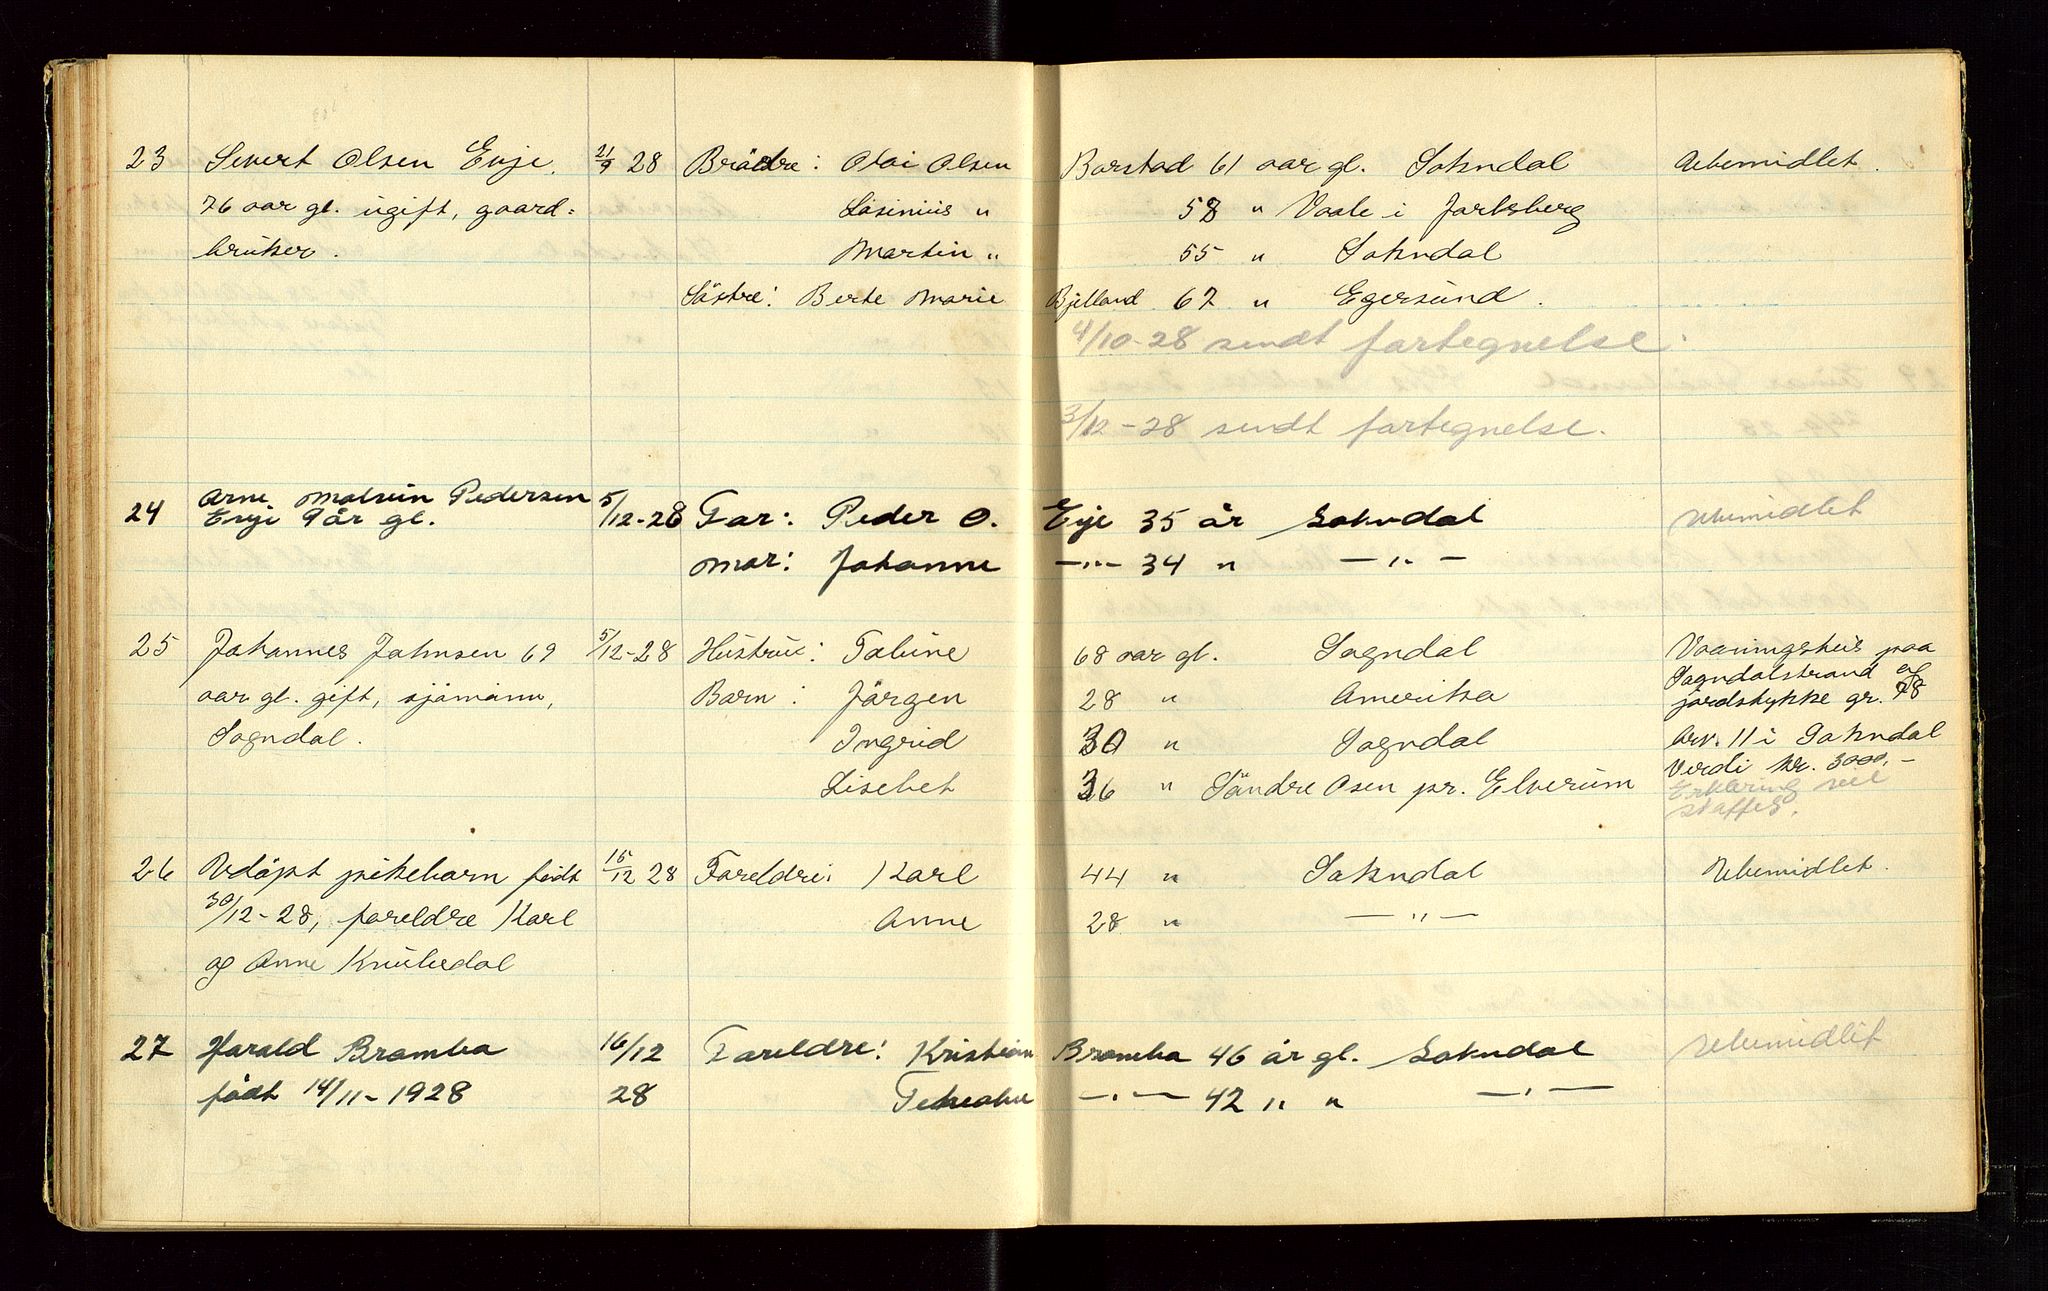 23 Sivert Olsen Evje. 21/9 28 Brödre: Olai Olsen Barstad 61 aar gl. Sokndal Ubemidlet.
76 aar gl. ugift, gaard= Lasinius " 58 " Vaale i Jarlsberg
bruker. Martin " 55 " Sokndal
Söstre: Berte Marie Bjelland 67 " Egersund.
4/10-28 sendt fortegnelse.
3/12-28 sendt fortegnelse.
24 Arne Pedersen 5/12-28 Far: Peder O. Evje 35 år Sokndal Ubemidlet
Evje 9 år gl.
Mor: Johanne —"— 34 " —"—
25 Johannes Johnsen 69 5/12-28 Hustru: Tabine 68 aar gl. Sogndal Vaaningshus paa
aar gl. gift, sjömann, Barn: Jörgen 28 " Amerika Sogndalstrand og
jordstykke gr. 78
Sogndal. Ingrid 30 " Sogndal brv. 11 i Sokndal
Lisebet 36 " Söndre Osen pr. Elverum Verdi kr. 3000,-
Erklæring vil
skaffes.
26 Udöpt pikebarn födt 15/12 28 Foreldre: Karl 44 " Sokndal Ubemidlet.
30/12-28, foreldre Karl Anne 28 " —"—
og Anne Knubedal
27 Harald Bramba 16/12 Foreldre: Kristian Bramba 46 år gl. Sokndal Ubemidlet
födt 14/11-1928 28 —"— 42 " " —"—